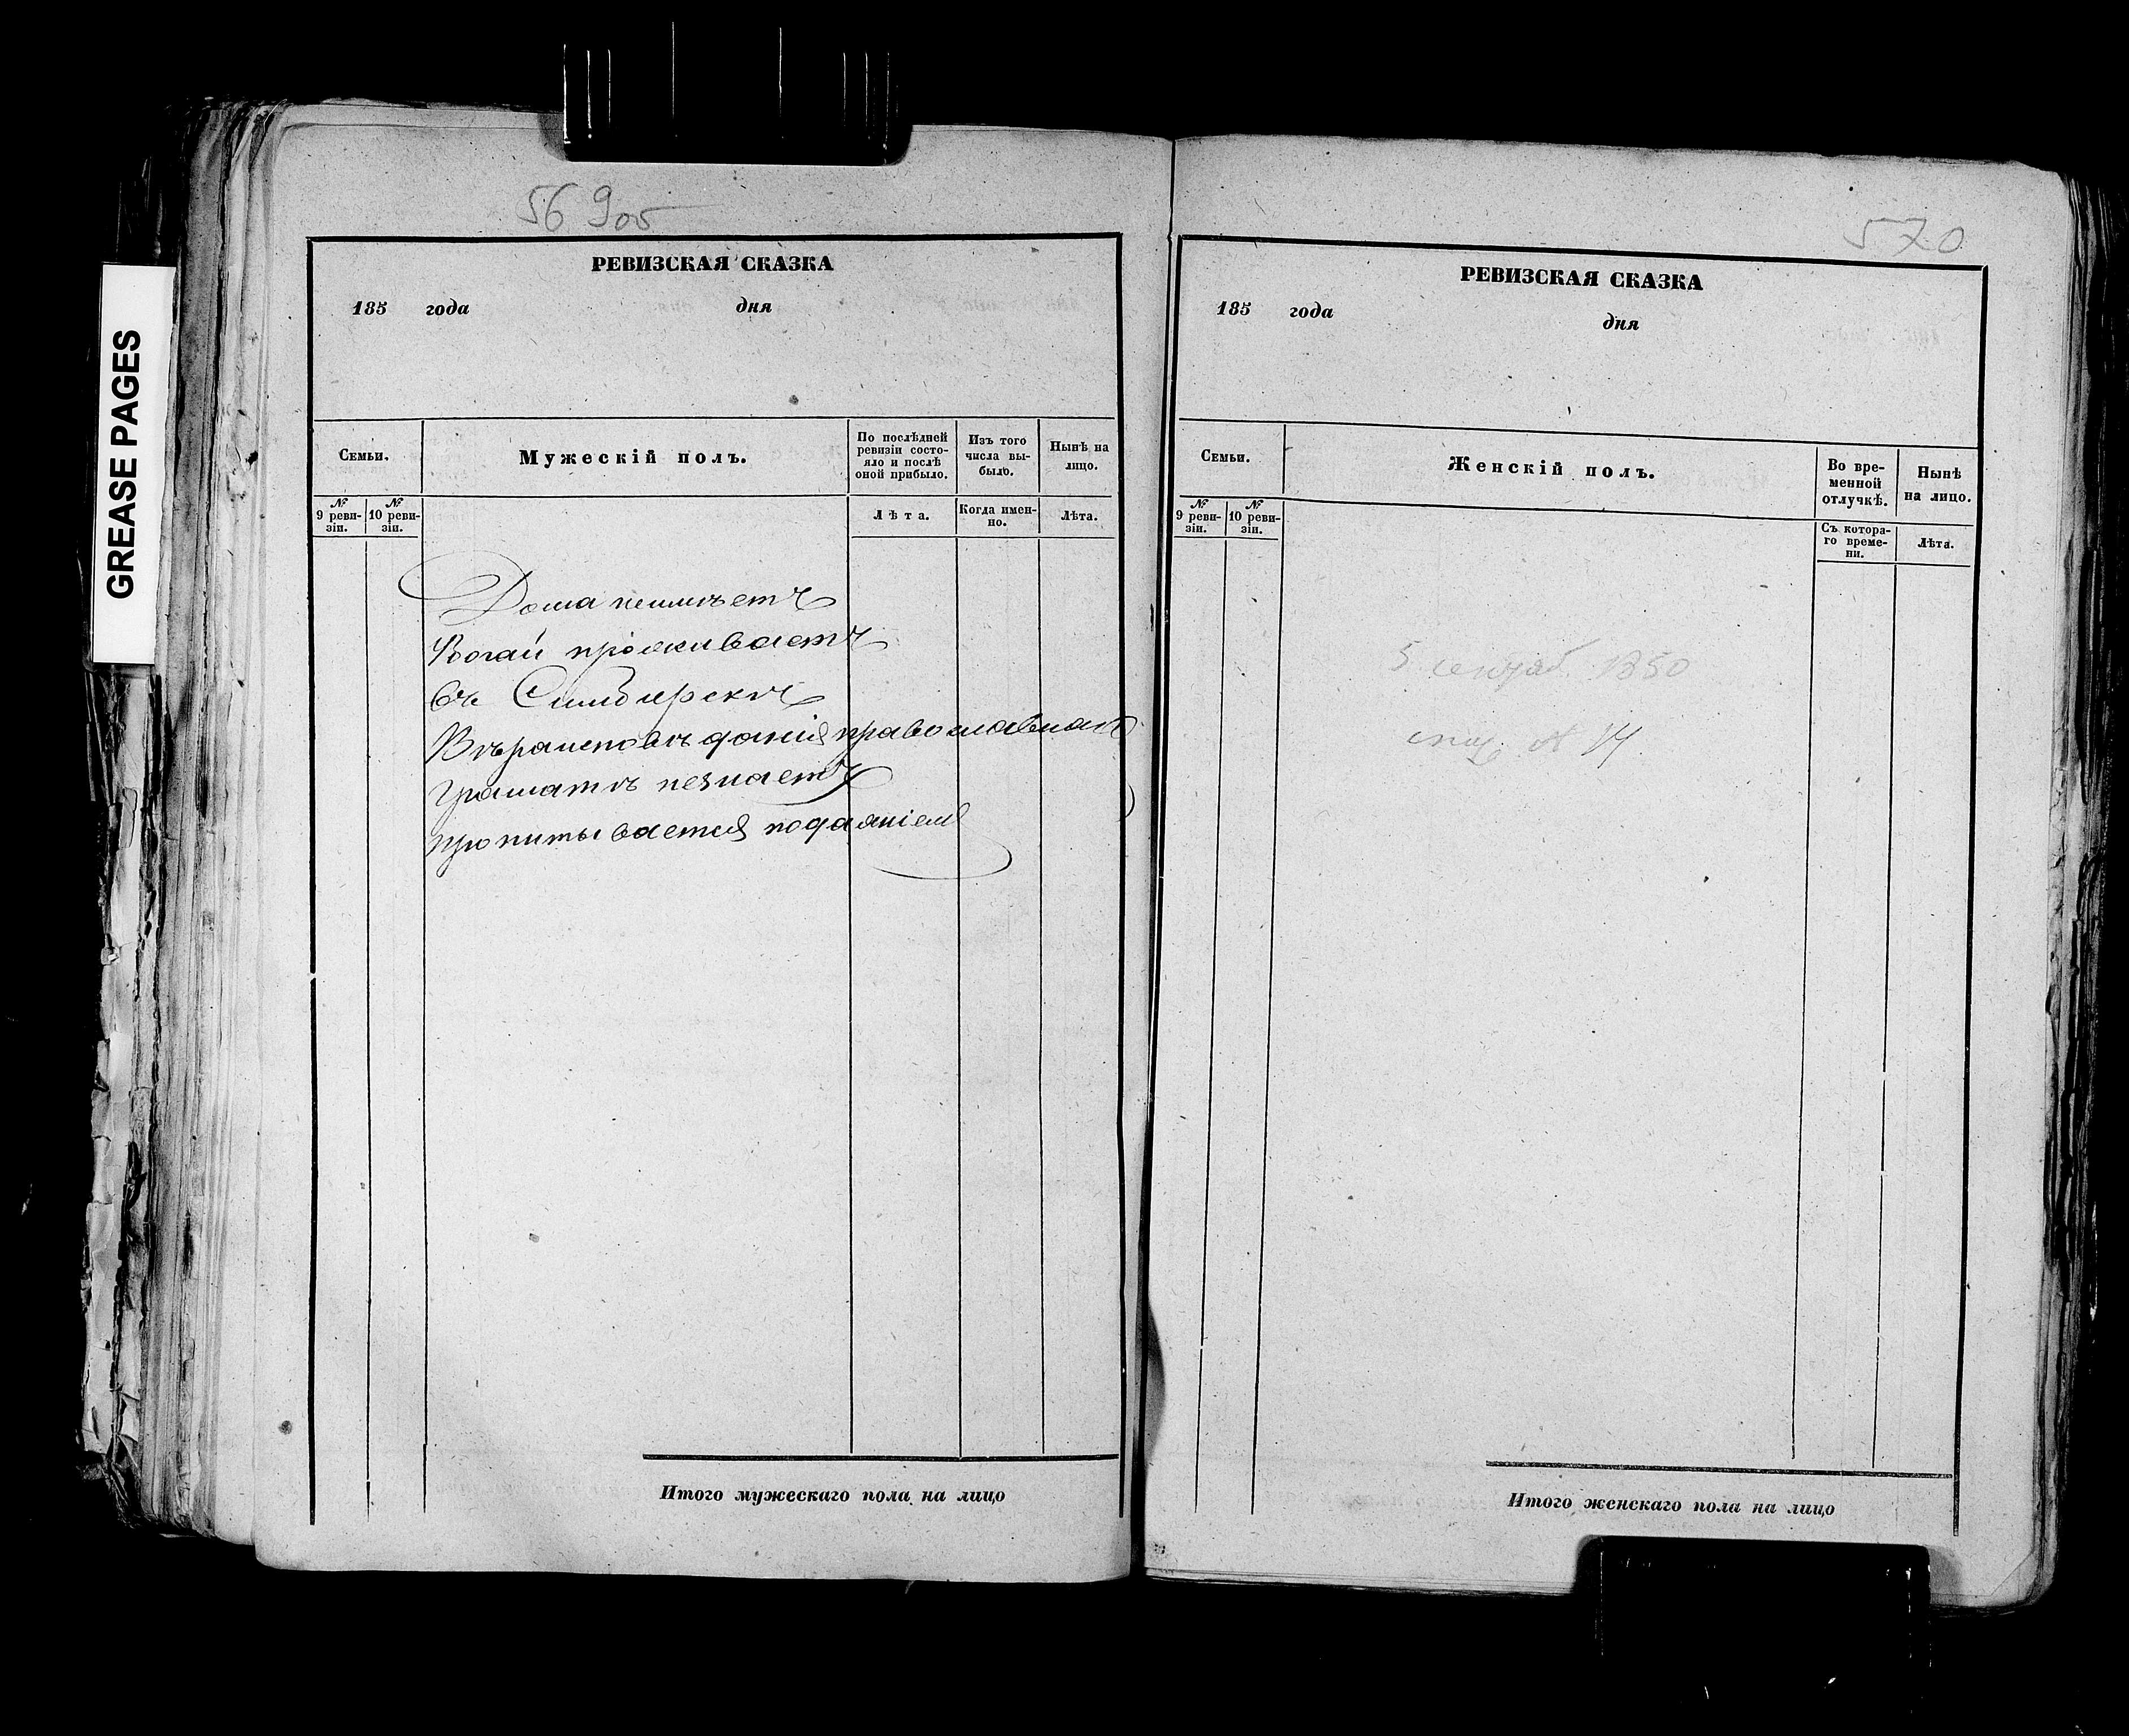 GREASE PAGES
56 9 об
РЕВИЗСКАЯ СКАЗКА
185 года дня
Семьи.
Мужескій полъ.
По послѣдней ревизіи состо-
яло и послѣ
оной прибыло.
Изъ того
числа вы-
было.
Нынѣ на
лицо.
№
9 реви-
зіи.
№
10 реви-
зіи.
Лѣта.
Когда имен-
но.
Лѣта.
Дома неимѣетъ
проживаетъ
въ Симбирскѣ
Вѣраисповѣданія православнаго
Граматѣ незнаетъ
пропитывается подаяніемъ
Итого мужескаго пола на лицо
570
РЕВИЗСКАЯ СКАЗКА
185 года дня
Семьи.
Женскій полъ.
Во вре-
менной
отлучкѣ.
Нынѣ
на лицо.
№
9 реви-
зіи.
№
10 реви-
зіи.
Съ котора-
го време-
ни.
Лѣта.
5 1850
Итого женскаго пола на лицо